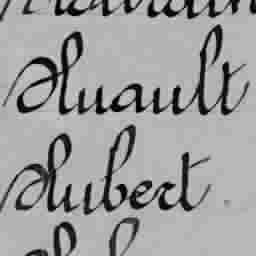 Huault
Hubert.